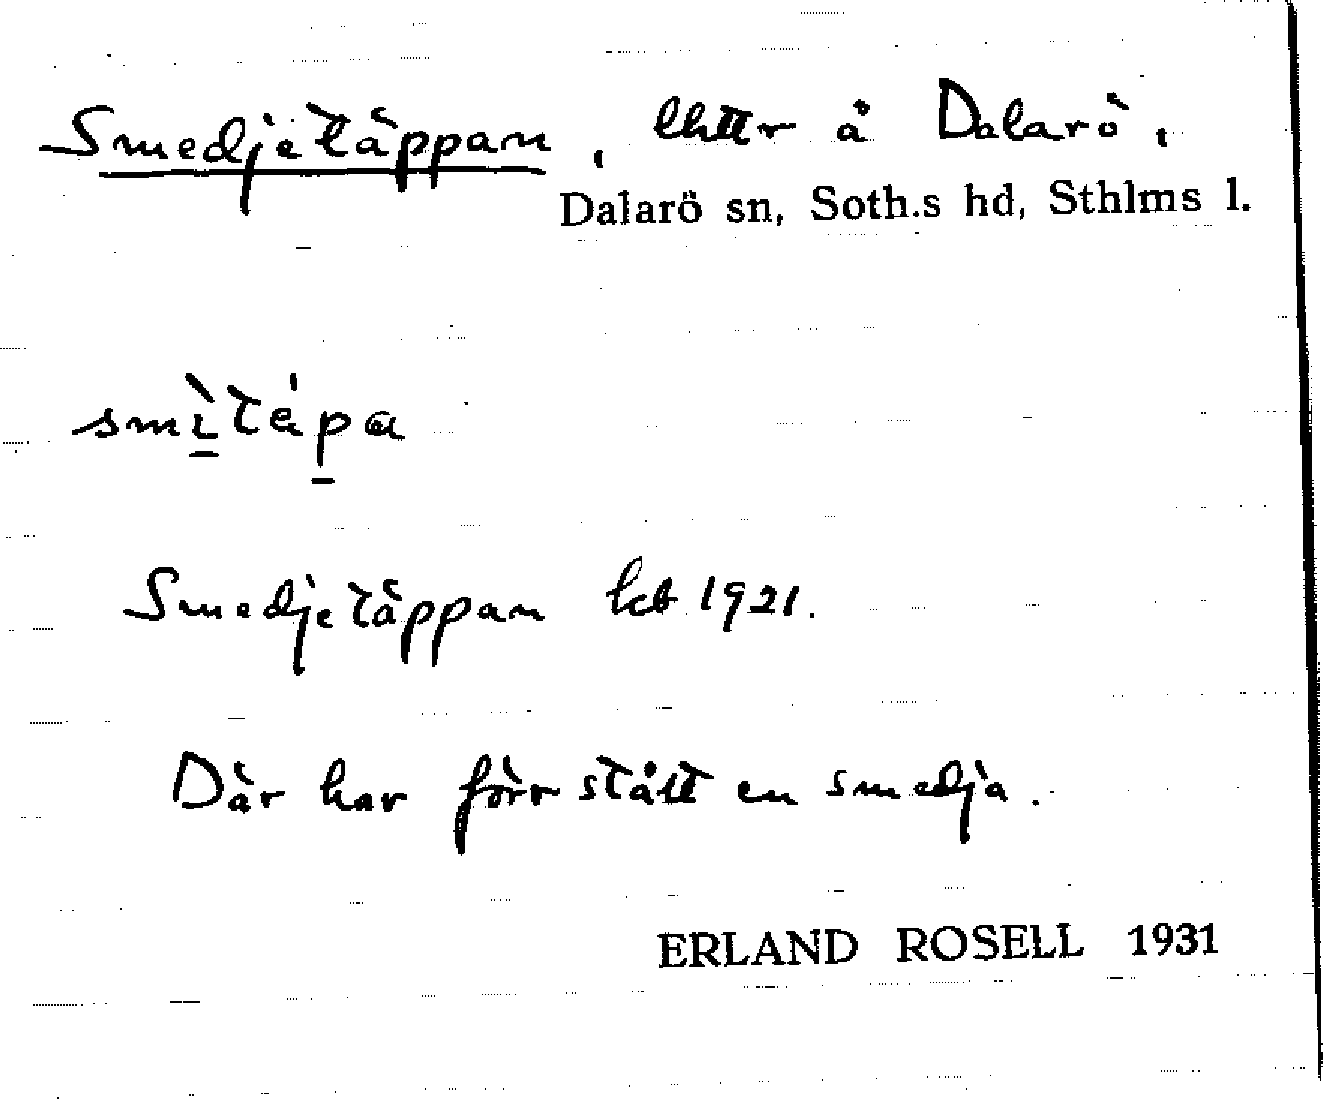 Smedjetäppan, lhttr å Dalarö,
Dalarö sn, Soth.s hd, Sthlms l.
smìtépa
Smedjetäppan kb 1921.
Där har förr stått en smedja.
ERLAND ROSELL 1931